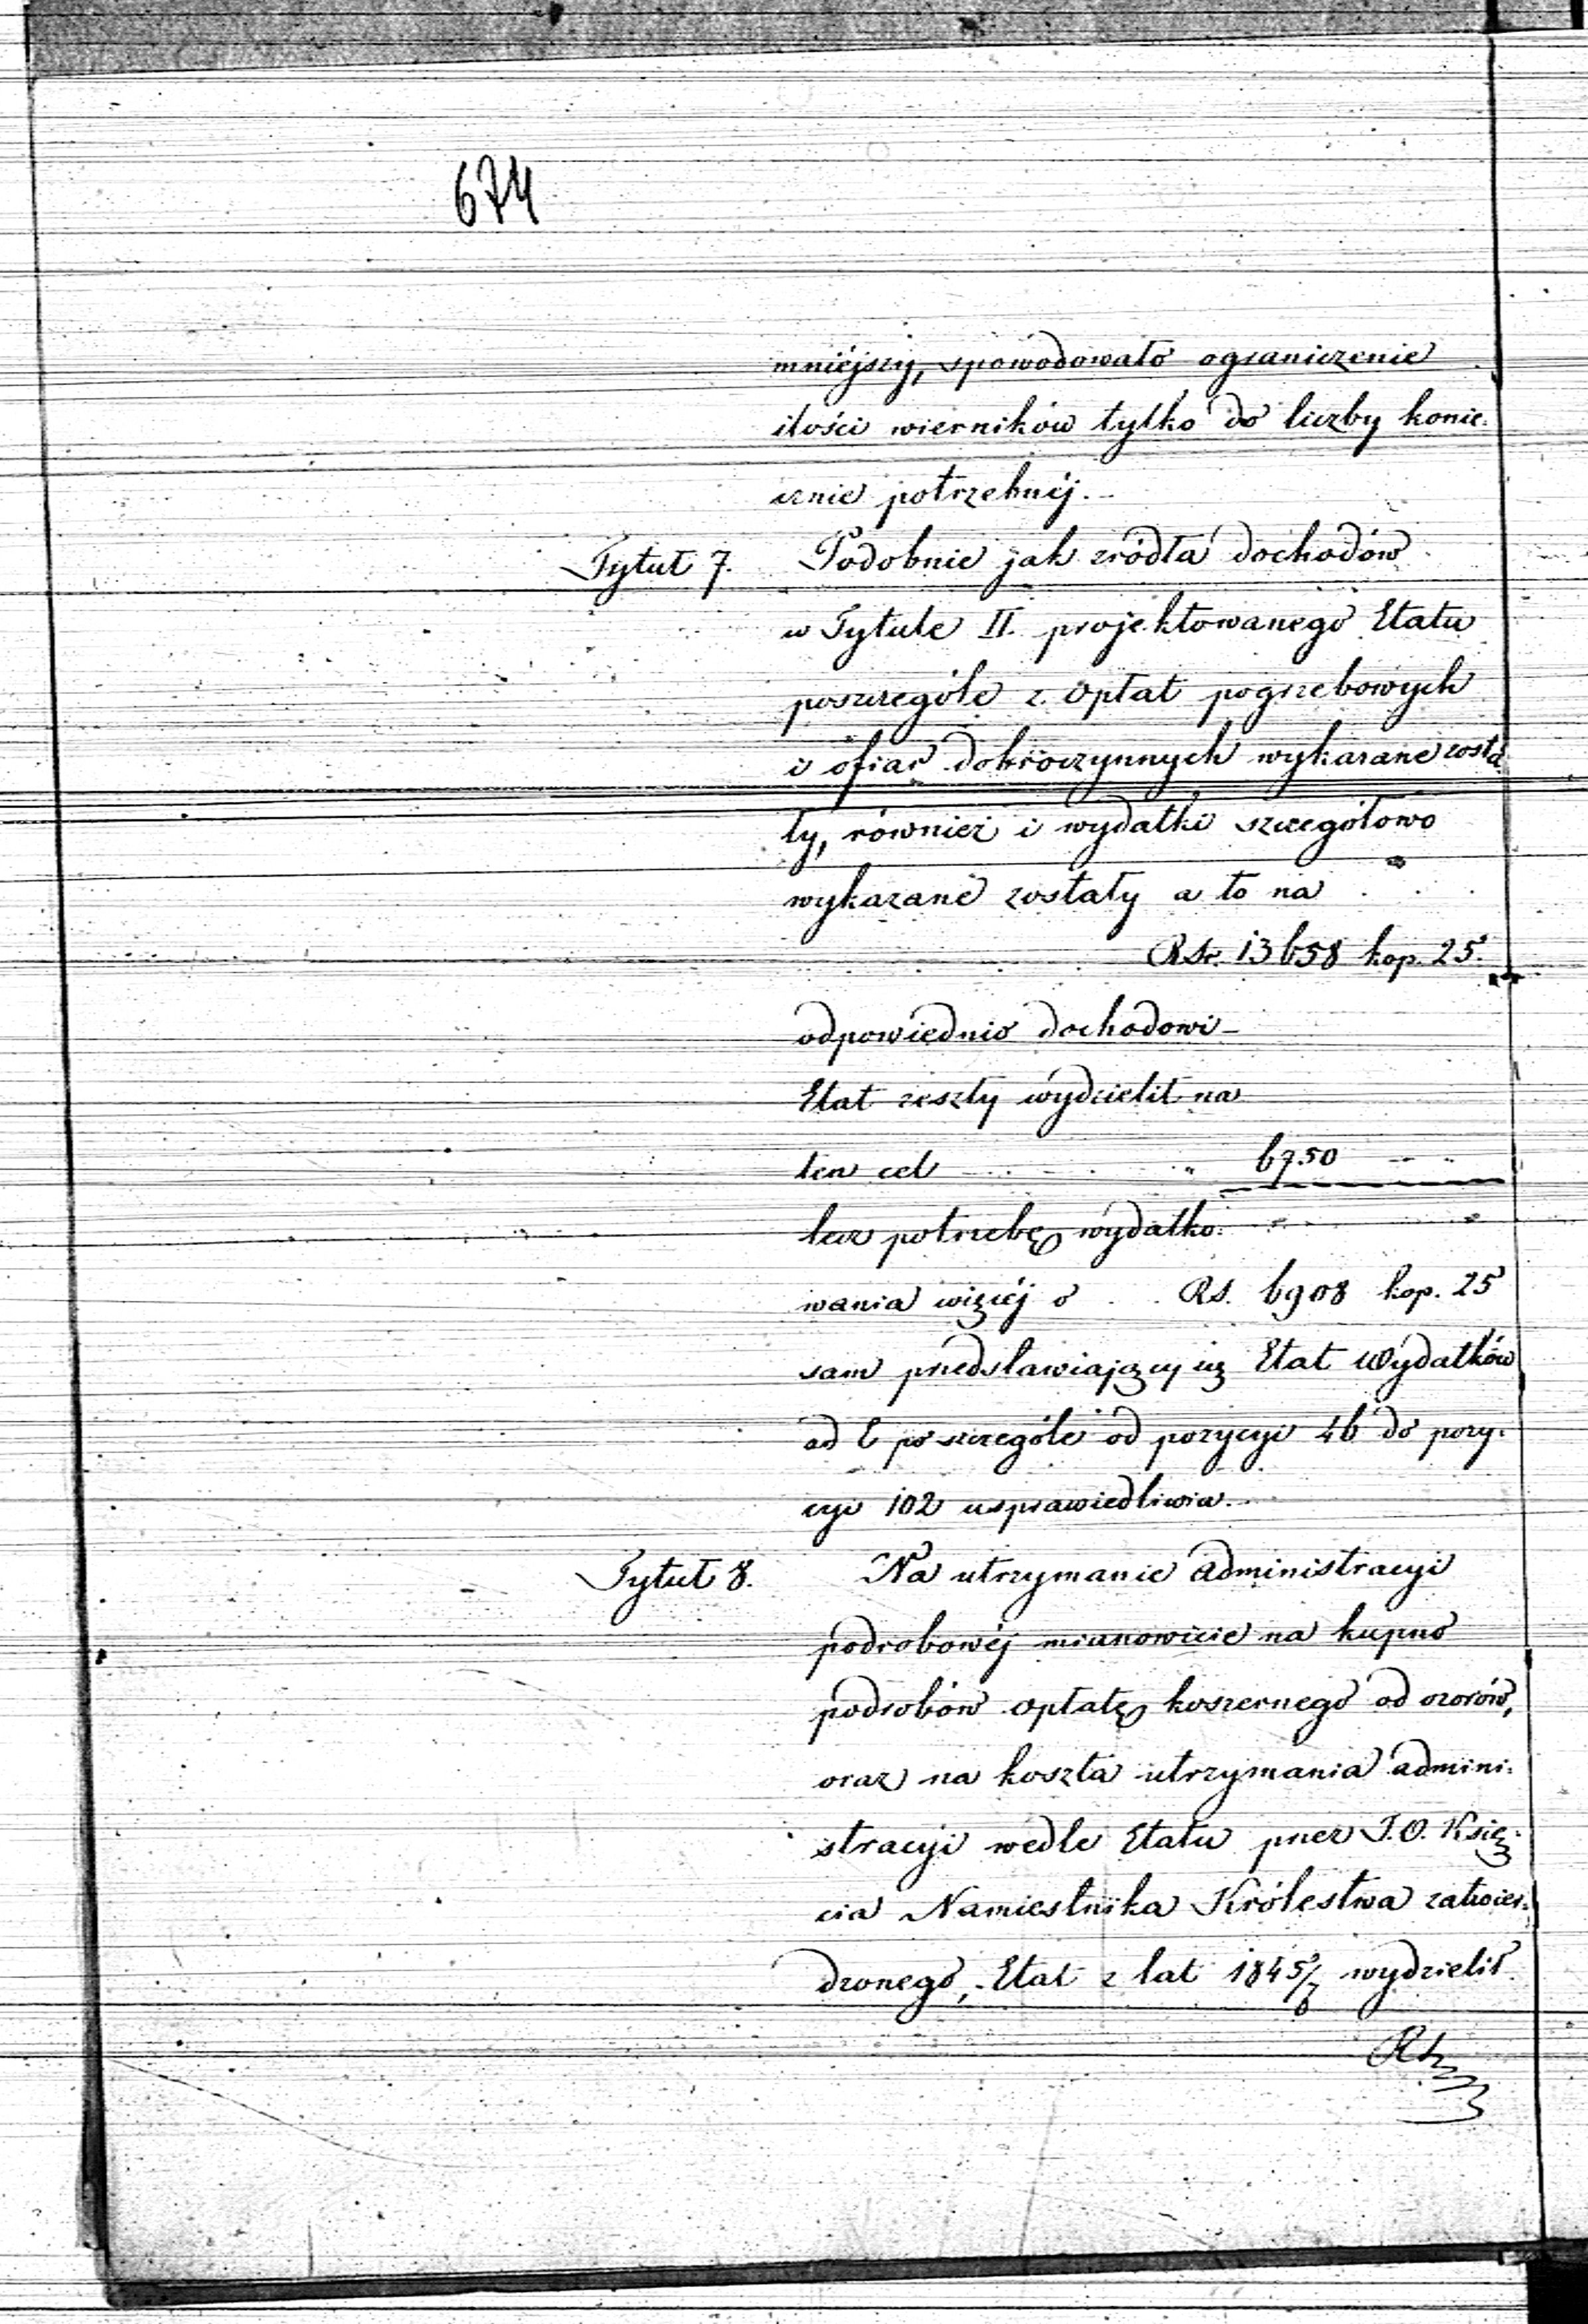 674
mniejszy, spowodowało ograniczenie
ilości wierników tylko do liczby konie-
cznie potrzebnéj. -
Tytuł 7. Podobnie jak zródła dochodów
w Tytule II. projektowanego Etatu
poszczególe z opłat pogrzebowych
i ofiar dobroczynnych wykazane zosta
ły, również i wydatki szczegółowo
wykazane zostały a to na . . .
RSr. 13658 kop. 25.
odpowiednio dochodowi -
Etat zeszły wydzielił na
ten cel . . . . „ 6750 - „
lecz potrzebę wydatko-
wania więcéj o . . RS. 6908 kop. 25
sam przedstawiający się Etat Wydatków
ad E poszczególe od pozycyi 46 do pozy-
cyi 102 usprawiedliwia. -
Tytuł 8. Na utrzymanie administracyi
podrobowéj mianowicie na kupno
podrobów opłatę koszernego od ozorów,
oraz na koszta utrzymania admini-
stracyi wedle Etatu przez J. O. Księ-
cia Namiestnika Królestwa zatwier-
dzonego, Etat z lat 1845/7 wydzielił